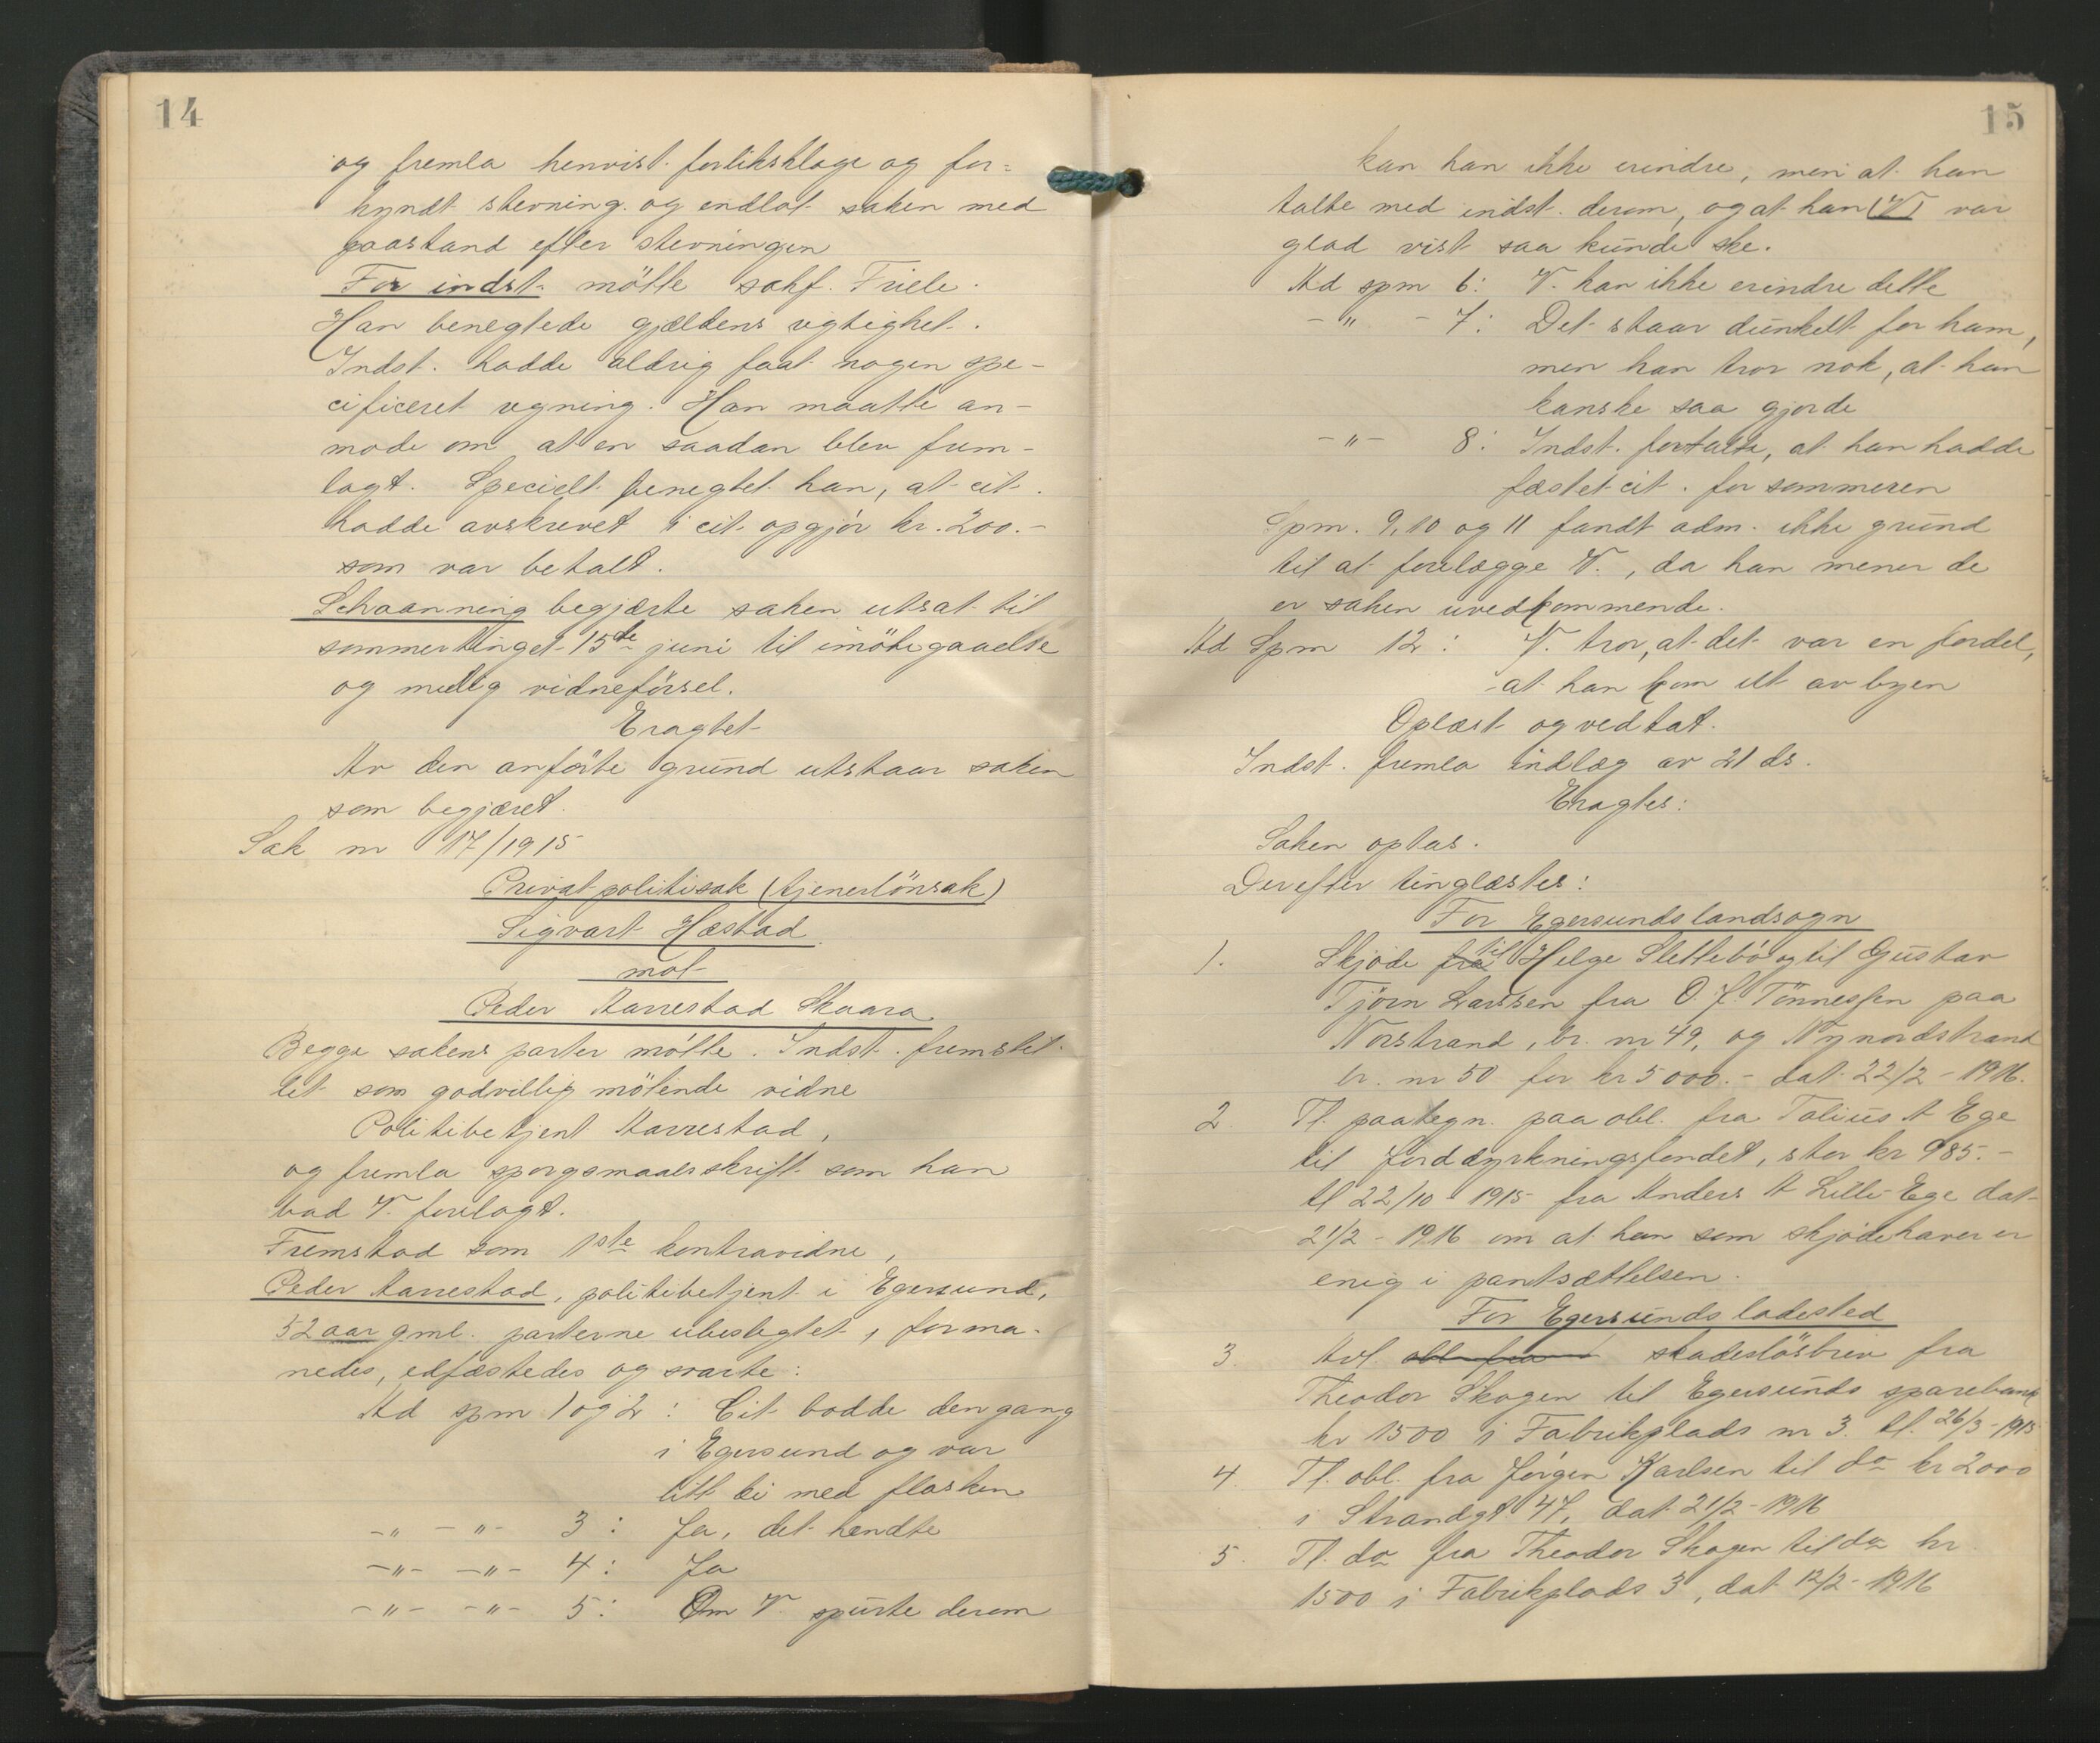 14
og fremla henvist forliksklage og for=
kyndt stevning og indlot saken med
paastand efter stevningen
For indst. mötte sakf. Friele.
Han benegtede gjældens rigtighet.
Indst. hadde aldrig faat nogen spe-
cificeret regning. Han maatte an-
mode om at en saadan blev frem-
lagt. Specielt benegtet han, at cit.
hadde avskrevet i cit. opgjör kr. 200.-
som var betalt.
Schaanning begjærte saken utsat til
sommertinget 15de juni til imötegaaelse
og mulig vidneförsel.
Eragtet
Av den anförte grund utstaar saken
som begjæret.
Sak nr 17/1915
Privat politisak (tjenerlönsak)
Sigvart Hæstad
mot
Peder Aarrestad Skaara
Begge sakens parter mötte. Indst. fremstil-
let som godvillig mötende vidne
Politibetjent Aarrestad,
og fremla sporgsmaalsskrift som han
bad V. forelagt.
Fremstod som 1ste kontravidne,
Peder Aarrestad, politibetjent i Egersund,
52 aar gml. parterne ubeslegtet, forma-
nedes, edfæstedes og svarte:
Ad spm 1 og 2: Cit. bodde dengang
i Egersund og var
litt bi med flasken
-"- -"- 3: Ja, det hændte
-"- -"- 4: Ja
-"- -"- 5: Om V. spurte derom
15
kan han ikke erindre, men at han
talte med indst. derom, og at han (V) var
glad vist saa kunde ske.
Ad spm 6: V. kan ikke erindre dette
-"- - 7: Det staar dunkelt for ham,
men han tror nok, at han
kanske saa gjorde
-"- 8: Indst. fortalte, at han hadde
fæstet cit. for sommeren
Spm. 9, 10 og 11 fandt adm. ikke grund
til at forelægge V., da han mener de
er saken uvedkommende.
Ad Spm 12: V. tror, at det var en fordel,
at han kom ut av byen
Oplæst og vedtat.
Indst. fremla indlæg av 21 ds.
Eragtes:
Saken optas.
Derefter tinglæstes:
For Egersunds landsogn
1. Skjöde fra til Helge Slettebö og til Gustav
Tjörn Larssen fra O. J. Tönnessen paa
Norstrand, br. nr 49, og Nynordstrand
br. nr 50 for kr 5000.- dat. 22/2-1916.
2. Tl. paategn. paa obl. fra Tolius A Ege
til Jorddyrkningsfondet, stor kr 985.-
tl 22/10-1915 fra Anders A Lille-Ege dat
21/2-1916 om at han som skjödehaver er
enig i pantsættelsen.
For Egersunds ladested
3. Avl. obl. fra skadeslösbrev fra
Theodor Skogen til Egersunds sparebank
kr 1500 i Fabrikplads nr 3. tl. 26/3-1915
4. Tl. obl. fra Jörgen Karlsen til do kr 2000
i Strandgt 47, dat. 21/2-1916
5. Tl. do fra Theodor Skogen til do kr
1500 i Fabrikplads 3, dat 12/2-1916